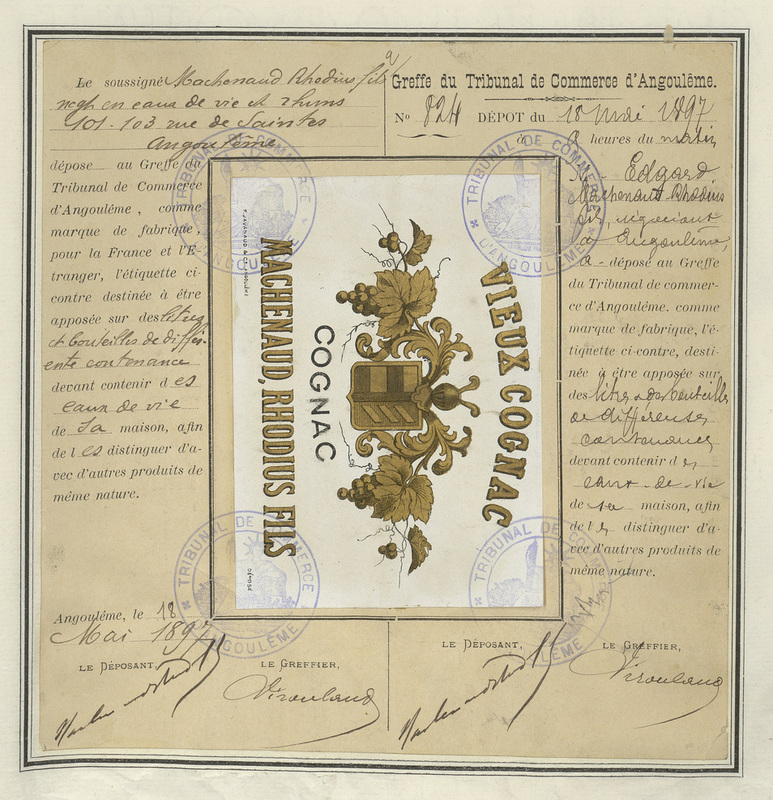 Le soussigné Machenaud Rhodius fils
negt en eaux de vie et rhums
101-103 rue de Saintes
Angoulême
dépose au Greffe du
Tribunal de Commerce
d'Angoulême, comme
marque de fabrique,
pour la France et l'É-
tranger, l'étiquette ci-
contre destinée à être
apposée sur des litres
et bouteilles de diffé-
rente contenance
devant contenir des
eaux de vie
de sa maison, afin
de les distinguer d'a-
vec d'autres produits de
même nature.
Angoulême, le 18
Mai 1897
LE DÉPOSANT,
LE GREFFIER,
Virouland
Greffe du Tribunal de Commerce d'Angoulême.
No 824 DÉPOT du 18 mai 1897
à heures du matin
M. Edgard
Machenaud-Rhodius
fils, négociant
à Angoulême,
a dépose au Greffe
du Tribunal de commer-
ce d'Angoulême. comme
marque de fabrique, l'é-
tiquette ci-contre, desti-
née à être apposée sur
des litres & des bouteilles
de différentes
contenances
devant contenir des
eaux-de-vie
de sa maison, afin
de les distinguer d'a-
vec d'autres produits de
même nature.
LE DÉPOSANT,
LE GREFFIER,
Virouland
VIEUX COGNAC
COGNAC
MACHENAUD, RHODIUS FILS
DÉPOSÉ
TRIBUNAL DE COMMERCE
D'ANGOULÊME
TRIBUNAL DE COMMERCE
D'ANGOULÊME
TRIBUNAL DE COMMERCE
ANGOULÊME
TRIBUNAL DE COMMERCE